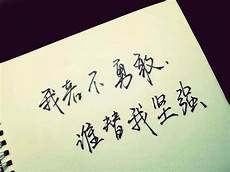 我若不勇敢.
谁替我坚强